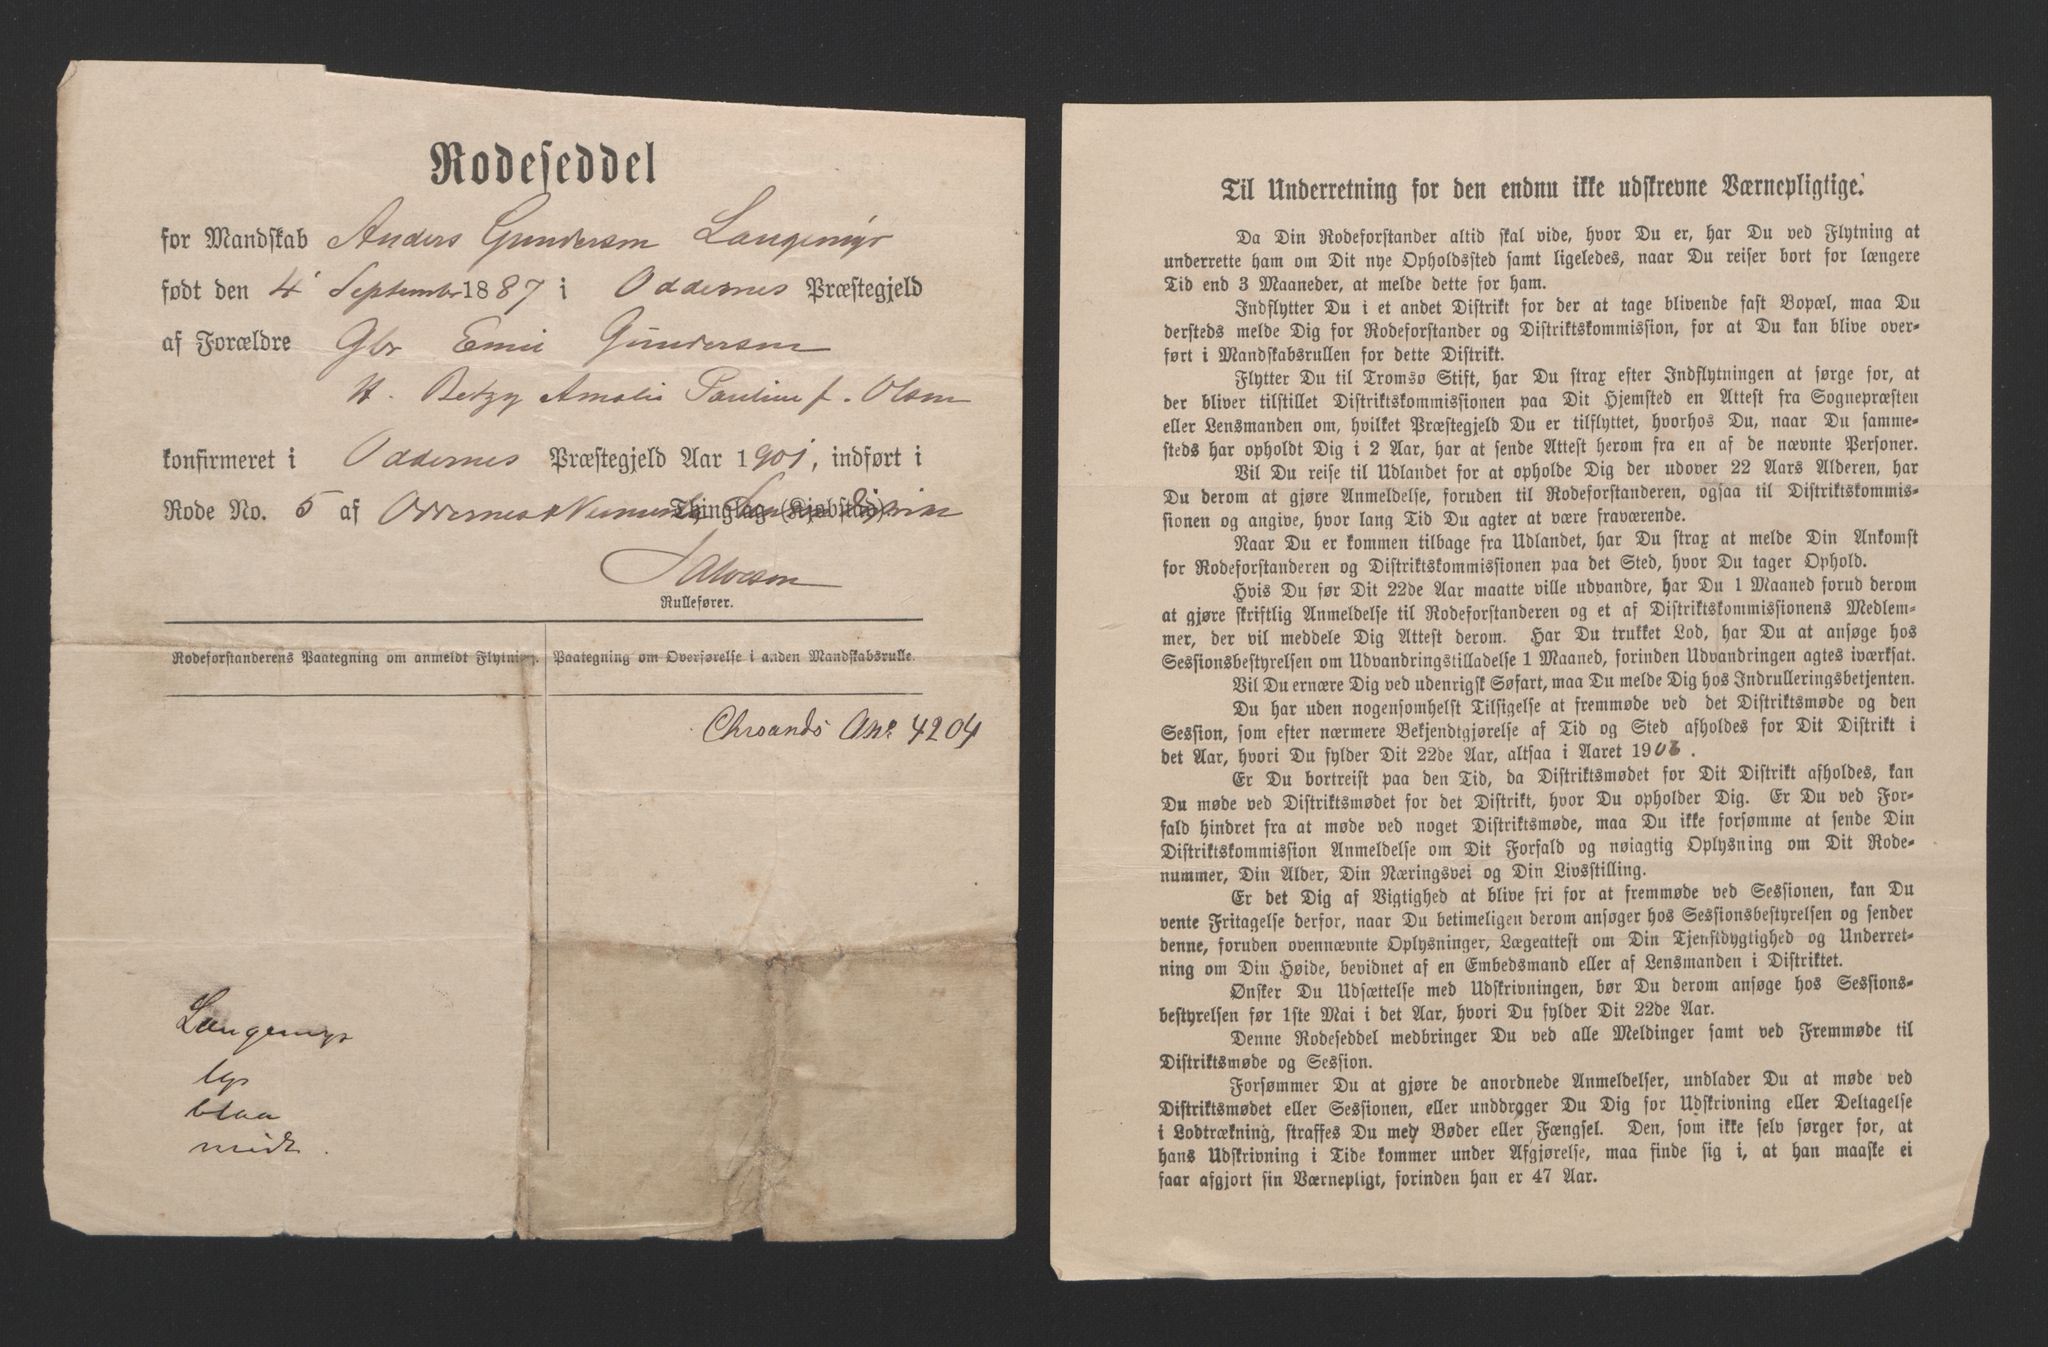 Rodeseddel
for Mandskab Anders Gundersen Langemyr
født den 4 September 1887 i Oddernes Præstegjeld
af Forældre Gbr Emil Gundersen
H. Betzy Amalie Pauline f. Olsen
konfirmeret i Oddernes Præstegjeld Aar 1901, indført i
Rode No. 5 af Oddernes Thinglag (Kjøbstad)
Rullefører.
Rodeforstanderens Paategning om anmeldt Flytning.
Paategning om Overførelse i anden Mandskabsrulle.
Chrsands A No 4204
Langemyr
lys
blaa
midt.
Til Underretning for den endnu ikke udskrevne Værnepligtige.
Da Din Rodeforstander altid skal vide, hvor Du er, har Du ved Flytning at
underrette ham om Dit nye Opholdssted samt ligeledes, naar Du reiser bort for længere
Tid end 3 Maaneder, at melde dette for ham.
Indflytter Du i et andet Distrikt for der at tage blivende fast Bopæl, maa Du
dersteds melde Dig for Rodeforstander og Distriktskommission, for at Du kan blive over-
ført i Mandskabsrullen for dette Distrikt.
Flytter Du til Tromsø Stift, har Du strax efter Indflytningen at sørge for, at
der bliver tilstillet Distriktskommissionen paa Dit Hjemsted en Attest fra Sognepræsten
eller Lensmanden om, hvilket Præstegjeld Du er tilflyttet, hvorhos Du, naar Du samme-
steds har opholdt Dig i 2 Aar, har at sende Attest herom fra en af de nævnte Personer.
Vil Du reise til Udlandet for at opholde Dig der udover 22 Aars Alderen, har
Du derom at gjøre Anmeldelse, foruden til Rodeforstanderen, ogsaa til Distriktskommis-
sionen og angive, hvor lang Tid Du agter at være fraværende.
Naar Du er kommen tilbage fra Udlandet, har Du strax at melde Din Ankomst
for Rodeforstanderen og Distriktskommissionen paa det Sted, hvor Du tager Ophold.
Hvis Du før Dit 22de Aar maatte ville udvandre, har Du 1 Maaned forud derom
at gjøre skriftlig Anmeldelse til Rodeforstanderen og et af Distriktskommissionens Medlem-
mer, der vil meddele Dig Attest derom. Har Du trukket Lod, har Du at ansøge hos
Sessionsbestyrelsen om Udvandringstilladelse 1 Maaned, forinden Udvandringen agtes iværksat.
Vil Du ernære Dig ved udenrigsk Søfart, maa Du melde Dig hos Indrulleringsbetjenten.
Du har uden nogensomhelst Tilsigelse at fremmøde ved det Distriktsmøde og den
Session, som efter nærmere Bekjendtgjørelse af Tid og Sted afholdes for Dit Distrikt i
det Aar, hvori Du fylder Dit 22de Aar, altsaa i Aaret 190 .
Er Du bortreist paa den Tid, da Distriktsmødet for Dit Distrikt afholdes, kan
Du møde ved Distriktsmødet for det Distrikt, hvor Du opholder Dig. Er Du ved For-
fald hindret fra at møde ved noget Distriktsmøde, maa Du ikke forsømme at sende Din
Distriktskommission Anmeldelse om Dit Forfald og nøiagtig Oplysning om Dit Rode-
nummer, Din Alder, Din Næringsvei og Din Livsstilling.
Er det Dig af Vigtighed at blive fri for at fremmøde ved Sessionen, kan Du
vente Fritagelse derfor, naar Du betimeligen derom ansøger hos Sessionsbestyrelsen og sender
denne, foruden ovennævnte Oplysninger, Lægeattest om Din Tjenstdygtighed og Underret-
ning om Din Høide, bevidnet af en Embedsmand eller af Lensmanden i Distriktet.
Ønsker Du Udsættelse med Udskrivningen, bør Du derom ansøge hos Sessions-
bestyrelsen før 1ste Mai i det Aar, hvori Du fylder Dit 22de Aar.
Denne Rodeseddel medbringer Du ved alle Meldinger samt ved Fremmøde til
Distriktsmøde og Session.
Forsømmer Du at gjøre de anordnede Anmeldelser, undlader Du at møde ved
Distriktsmødet eller Sessionen, eller unddrager Du Dig for Udskrivning eller Deltagelse
i Lodtrækning, straffes Du med Bøder eller Fængsel. Den, som ikke selv sørger for, at
hans Udskrivning i Tide kommer under Afgjørelse, maa finde sig i, at han maaske ei
faar afgjort sin Værnepligt, forinden han er 47 Aar.